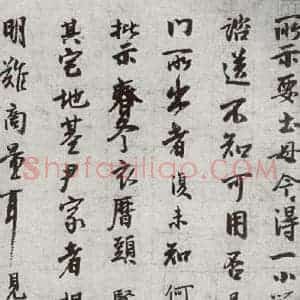 所示要土母今得一小
諮送不知可用否
門所出者復未知何
批示齊
其它地基尹家者
明難商量耳見
Shufaziliao.com